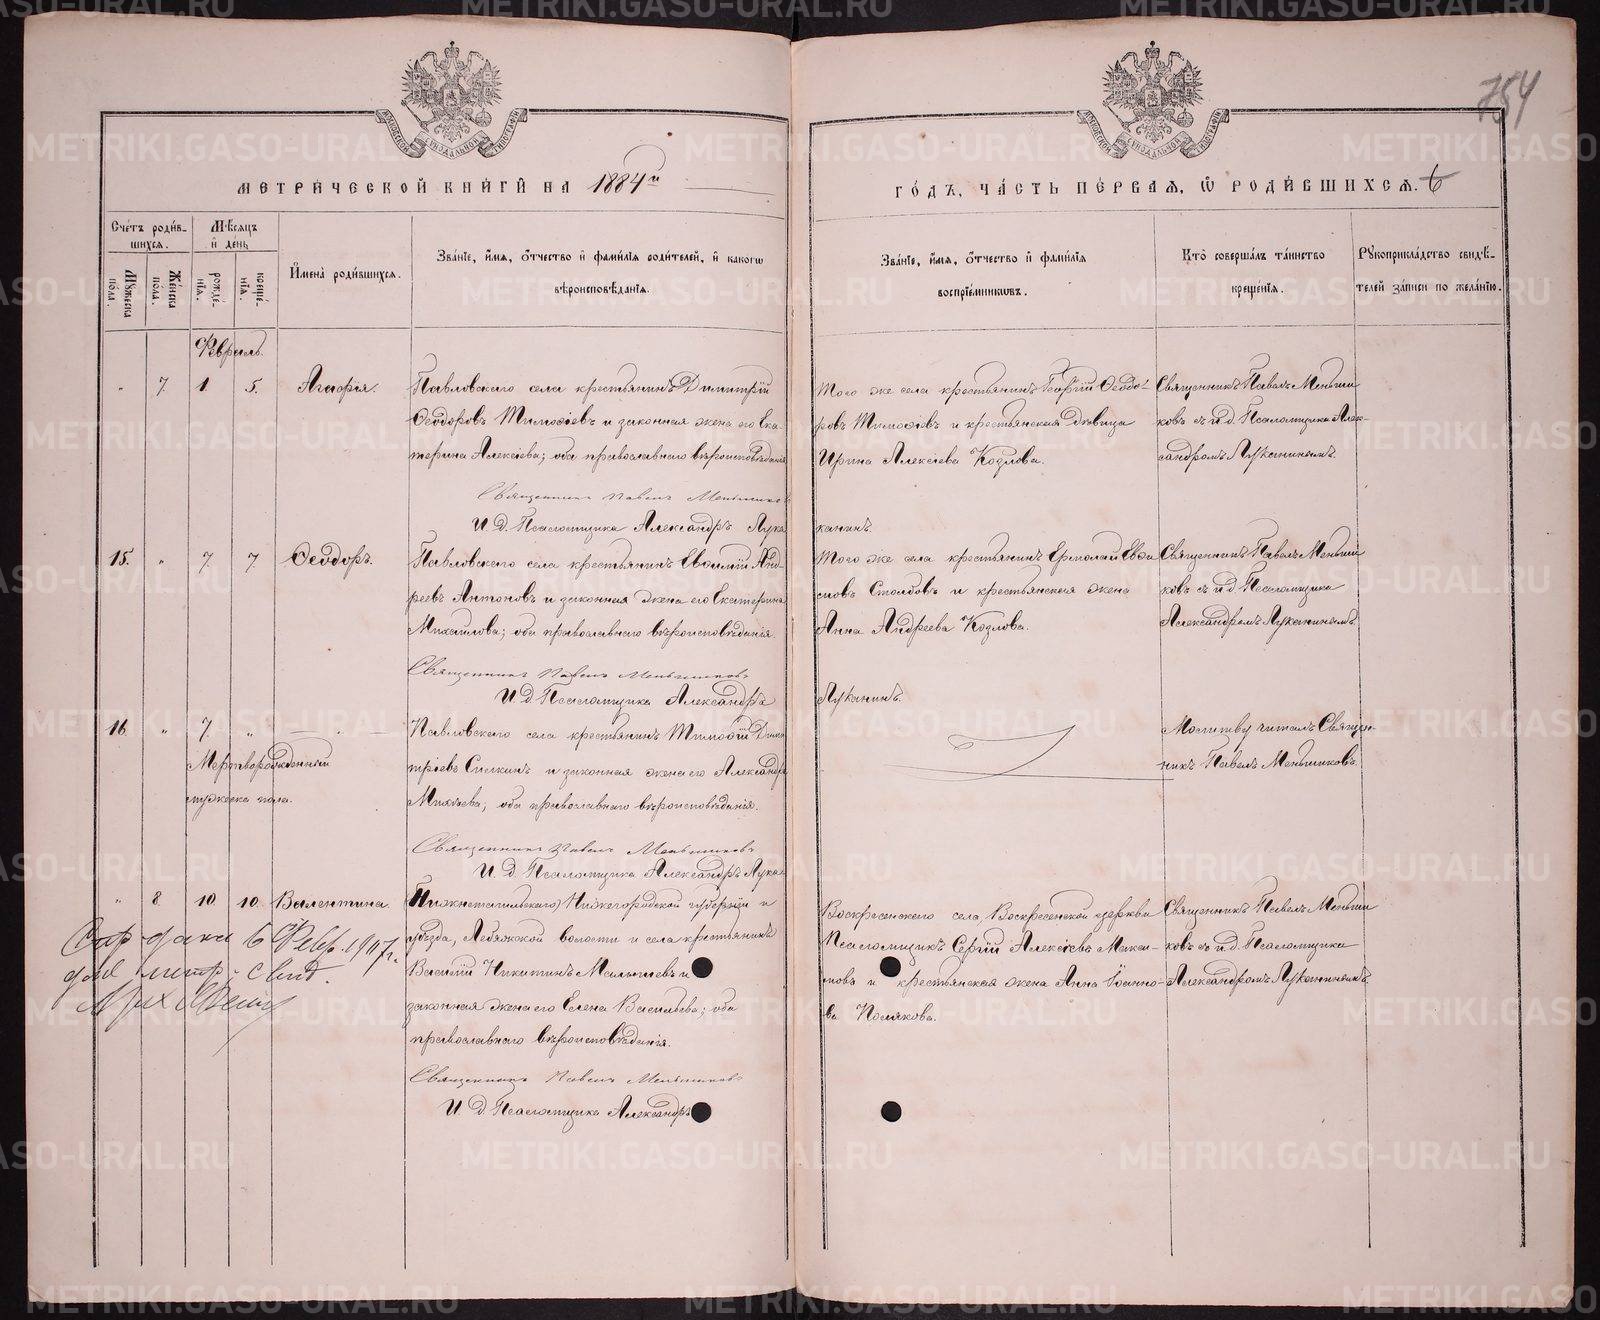 754
МЕТРИЧЕСКОЙ КНИГИ НА 1884й
ГОДЪ, ЧАСТЬ ПЕРВАЯ, Ѡ РОДИВШИХСЯ. 6
Счетъ родив-
шихся.
Мѣсяцъ
и день
Мужеска
пола.
Женска
пола.
рожде-
нія.
креще-
нія.
Имена родившихся.
Званіе, имя, отчество и фамилія родителей, и какого
вѣроисповѣданія.
Званіе, имя, отчество и фамилія
воспріемниковъ.
Кто совершалъ таинство
крещенія.
Рукоприкладство свидѣ-
телей записи по желанію.
Февраль.
" 7 1 5. Агафія.
Павловскаго села крестьянинъ Димитрій
Ѳеодоровъ Тимоѳіевъ и законная жена его Ека-
терина Алексіева; оба православнаго вѣроисповѣданія
Священникъ Павелъ Меньшиковъ
И. Д. Псаломщика Александръ Лука
Того же села крестьянинъ Георгій Ѳеодо-
ровъ Тимоѳіевъ и крестьянская дѣвица
Ирина Алексіева Козлова.
канинъ
Священникъ Павелъ Меньши
ковъ съ и. д. Псаломщика Алек-
сандромъ Луканинымъ.
15. " 7 7 Ѳеодоръ.
Павловскаго села крестьянинъ Евѳимій Анд-
реевъ Антоновъ и законная жена его Екатерина
Михаилова; оба православнаго вѣроисповѣданія.
Священникъ Павелъ Меньшиковъ
И. Д. Псаломщика Александръ
Того же села крестьянинъ Ермолай Евѳи
мовъ Столбовъ и крестьянская жена
Анна Андреева Козлова.
Луканинъ.
Священникъ Павелъ Меньши
ковъ съ и. д. Псаломщика
Александромъ Луканинымъ.
16 " 7. "
Мертворожденный
мужеска пола.
Павловскаго села крестьянинъ Тимоѳій Дими
тріевъ и законная жена его Александра
оба православнаго вѣроисповѣданія.
Священникъ Павелъ Меньшиковъ
И. Д. Псаломщика Александръ Лука
Молитву читалъ Священ-
никъ Павелъ Меньшиковъ.
" 8 10 10. Валентина.
Нижегородской губерніи и
уѣзда, волости и села крестьянинъ
Василій Никитинъ Малышевъ и
законная жена его Елена Васильева; оба
православнаго вѣроисповѣданія.
Священникъ Павелъ Меньшиковъ
И. Д. Псаломщика Александръ
Воскресенскаго села Воскресенской церкви
Псаломщикъ Сергій Алексіевъ Макси-
мовъ и крестьянская жена Анна Іоанно-
ва Полякова.
Священникъ Павелъ Меньши
ковъ съ и. д. Псаломщика
Александромъ Луканинымъ.
6 Февр. 1907 г.
METRIKI.GASO-URAL.RU